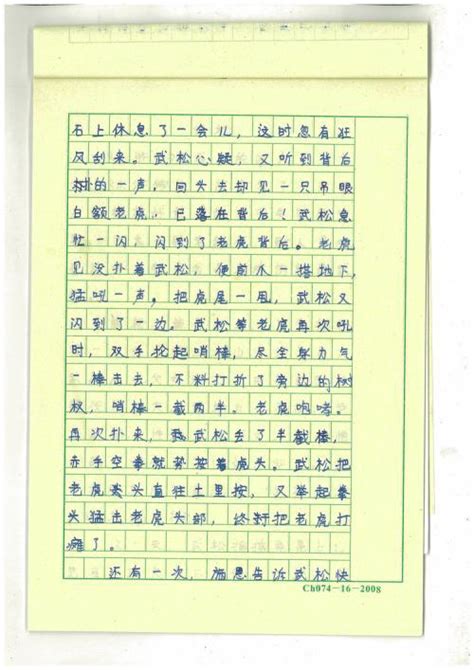 石上休息了一会儿，这时忽有狂
风刮来。武松心疑，又听到背后
的一声，回头去却见一只吊眼
白额老虎，已落在背后！武松急
忙一闪，闪到了老虎背后。老虎
见没扑着武松，便前爪一搭地下，
猛吼一声。把虎尾一甩，武松又
闪到了一边。武松等老虎再次吼
时，双手抡起哨棒，尽全身力气
一棒击去，不料打折了旁边的树
杈，哨棒一截两半。老虎咆哮。
再次扑来，武松丢了半截棒，
赤手空拳就势按着虎头。武松把
老虎头直往土里按，又举起拳
头猛击老虎头部，终于把老虎打
瘫了。
还有一次，施恩告诉武松快
Ch074-16-2008